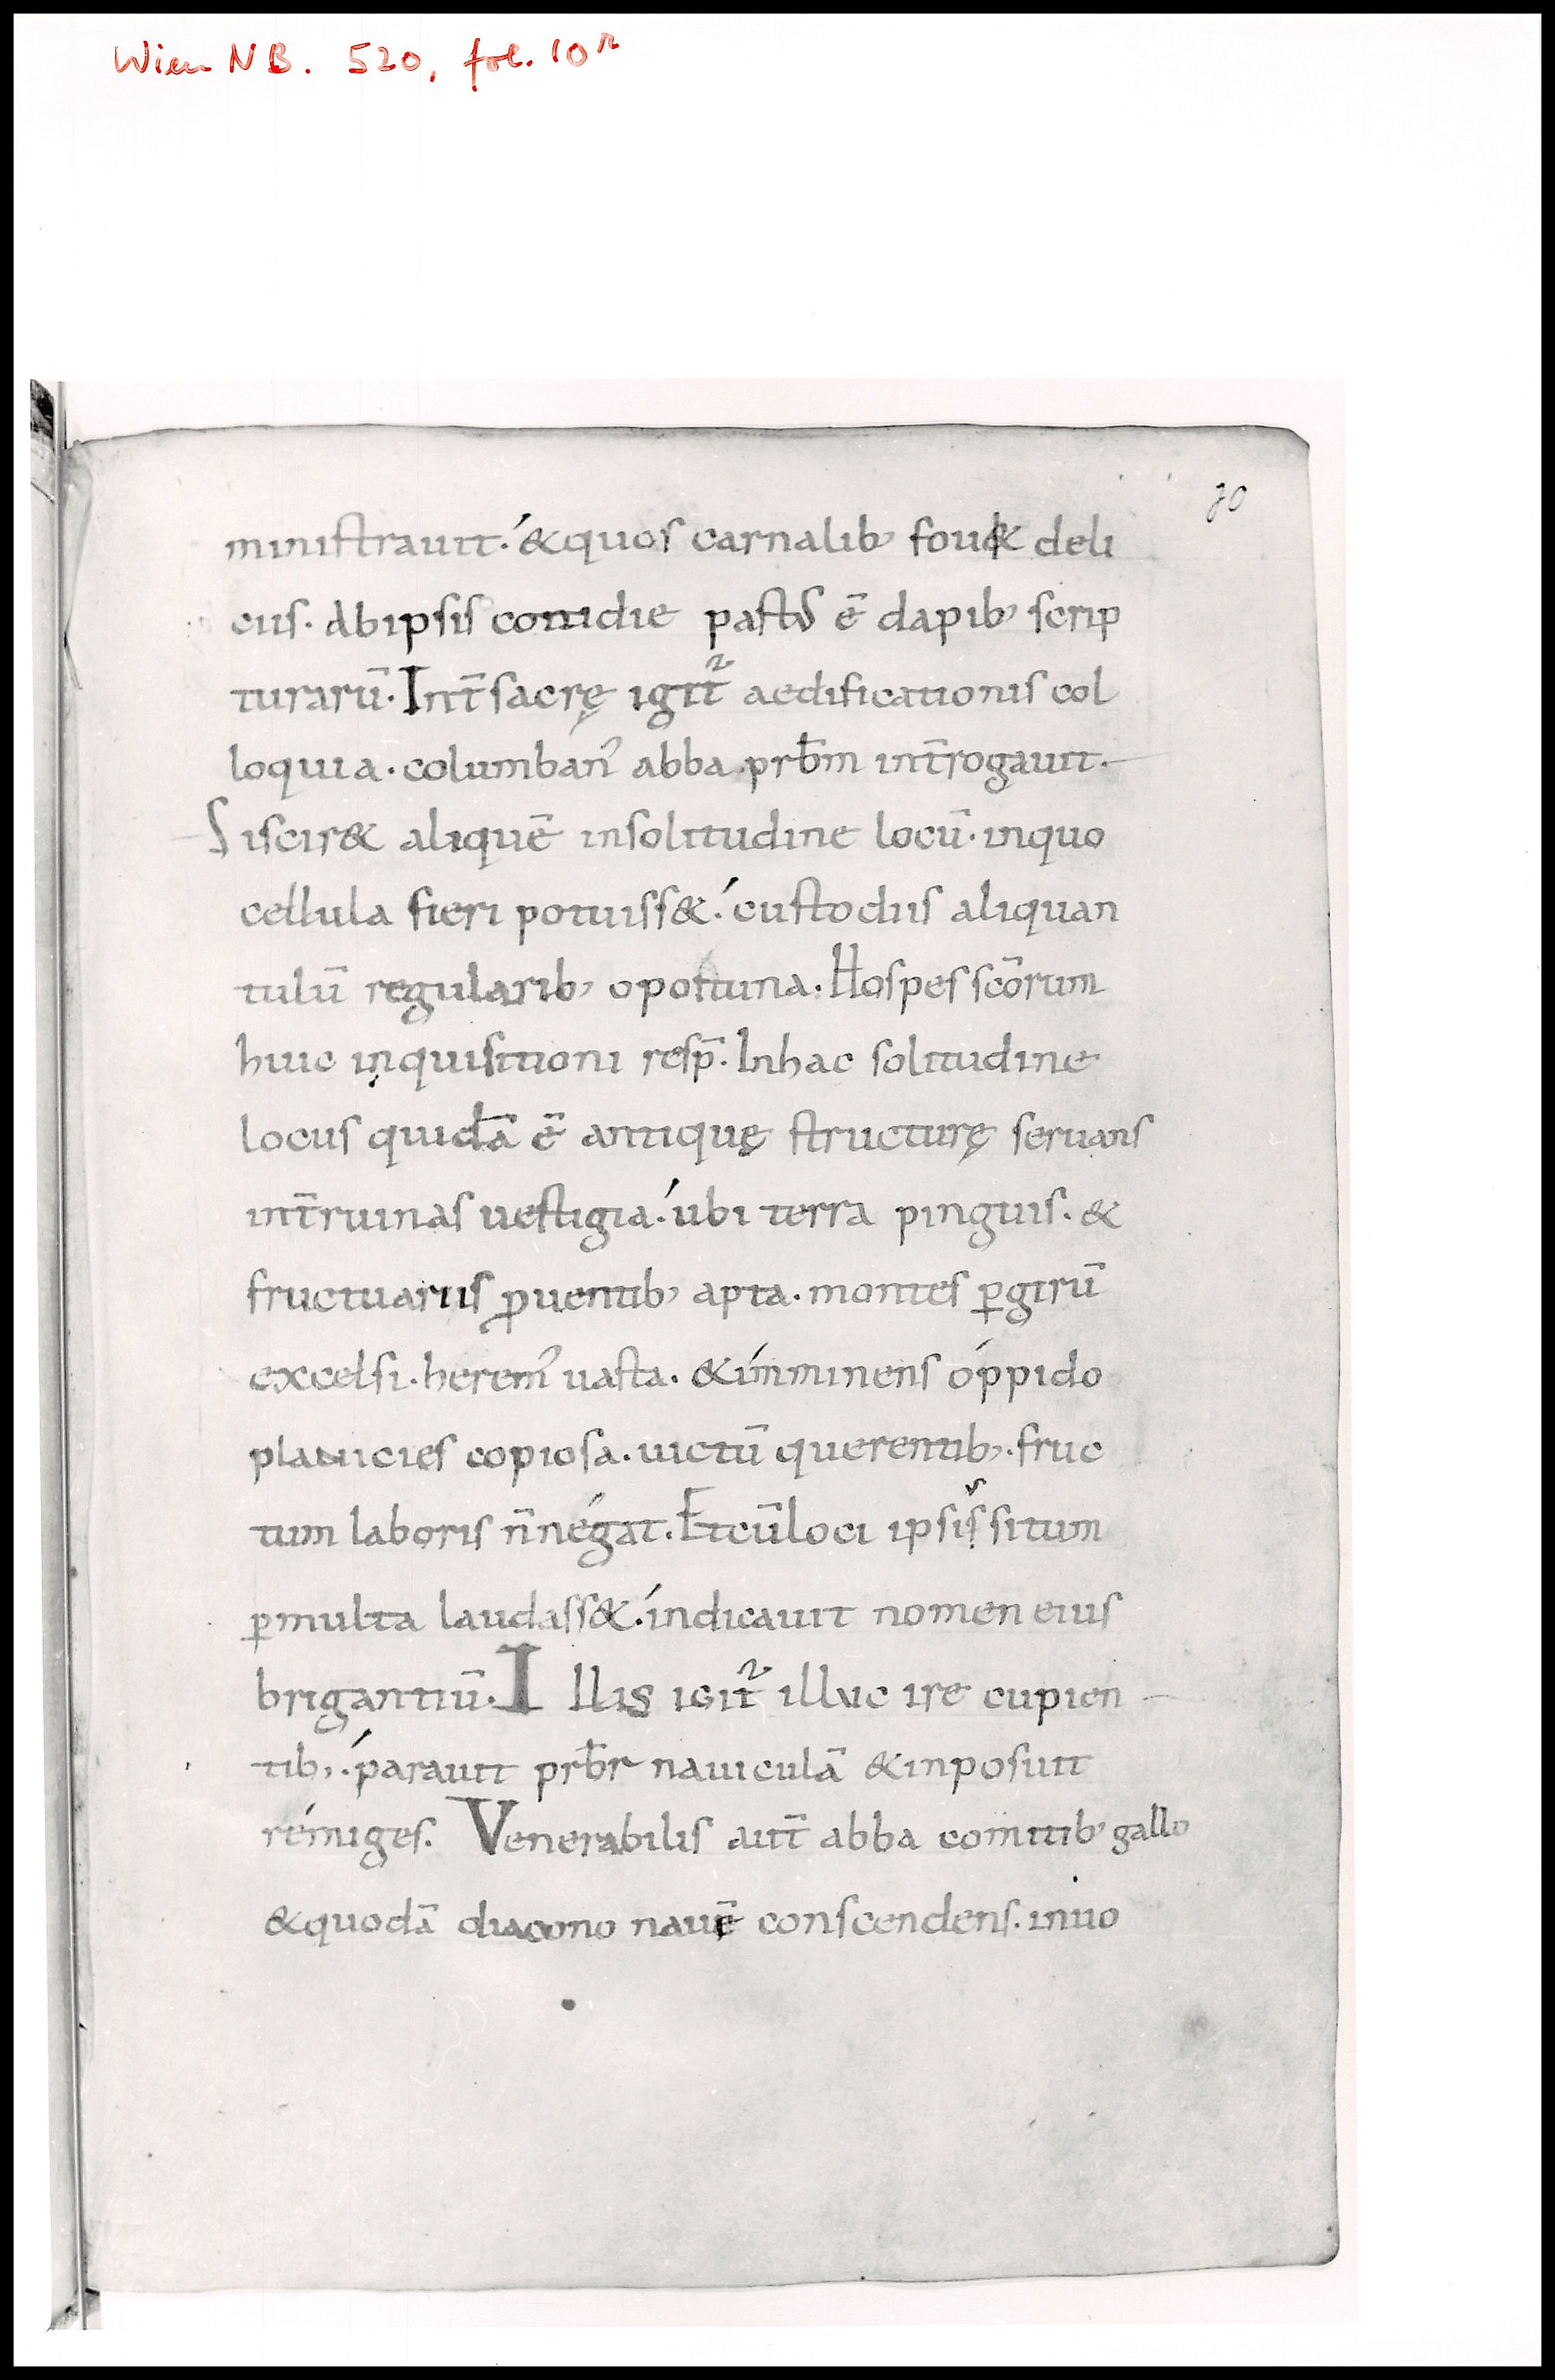 Wien NB. 520, fol. 10r
10
miniſtrauit. &quos carnalib; fou& deli
ciis. Abipsis cottidie paſtus ē dapib; scrip
turarū. Int̄ sacrę igit᷑ aedificationis col
loquia. columban᾽ abba prb̄m int̄rogauit.
Siscir& aliquē insolitudine locū. inquo
cellula fieri potuiss&. cuſtodiis aliquan
tulū regularib; oportuna. Hospes scōrum
huic inquisitioni resp̄. Inhac solitudine
locus quidā ē antiquę ſtructurę seruans
int̄ ruinas ueſtigia. ubi terra pinguis. &
fructuariis ꝓuentib; apta. montes ꝑgirū
excelsi. herem᾽ uaſta. &imminens óppido
planicies copiosa. uictū querentib;. fruc
tum laboris n̄ négat. Etcū loci ipsius situm
ꝑmulta laudass&. indicauit nomen eius
brigantiū. Illis igit᷑ illuc ire cupien
tib;. parauit prb̄r nauiculā &inposuit
rémiges. Venerabilis aut̄ abba comitib; gallo
&quodā diacono nauē conscendens. inuo